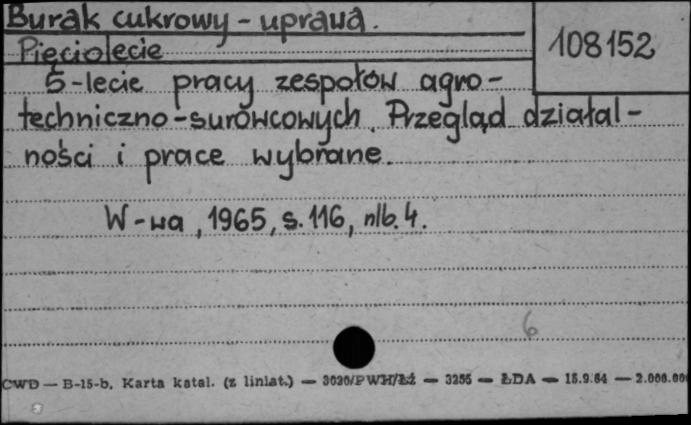 Burak cukrowy - uprawa.
108152
Pięciolecie
5-lecie pracy zespołów agro-
techniczno-surowcowych. Przegląd działal-
ności i prace wybrane.
W-wa, 1965, s. 116, nlb. 4.
6
CWD — B-15-b, Karta katal. (z liniat.) — 3020/PWH/Łż — 3255 — ŁDA — 15.9.64 — 2.000.000